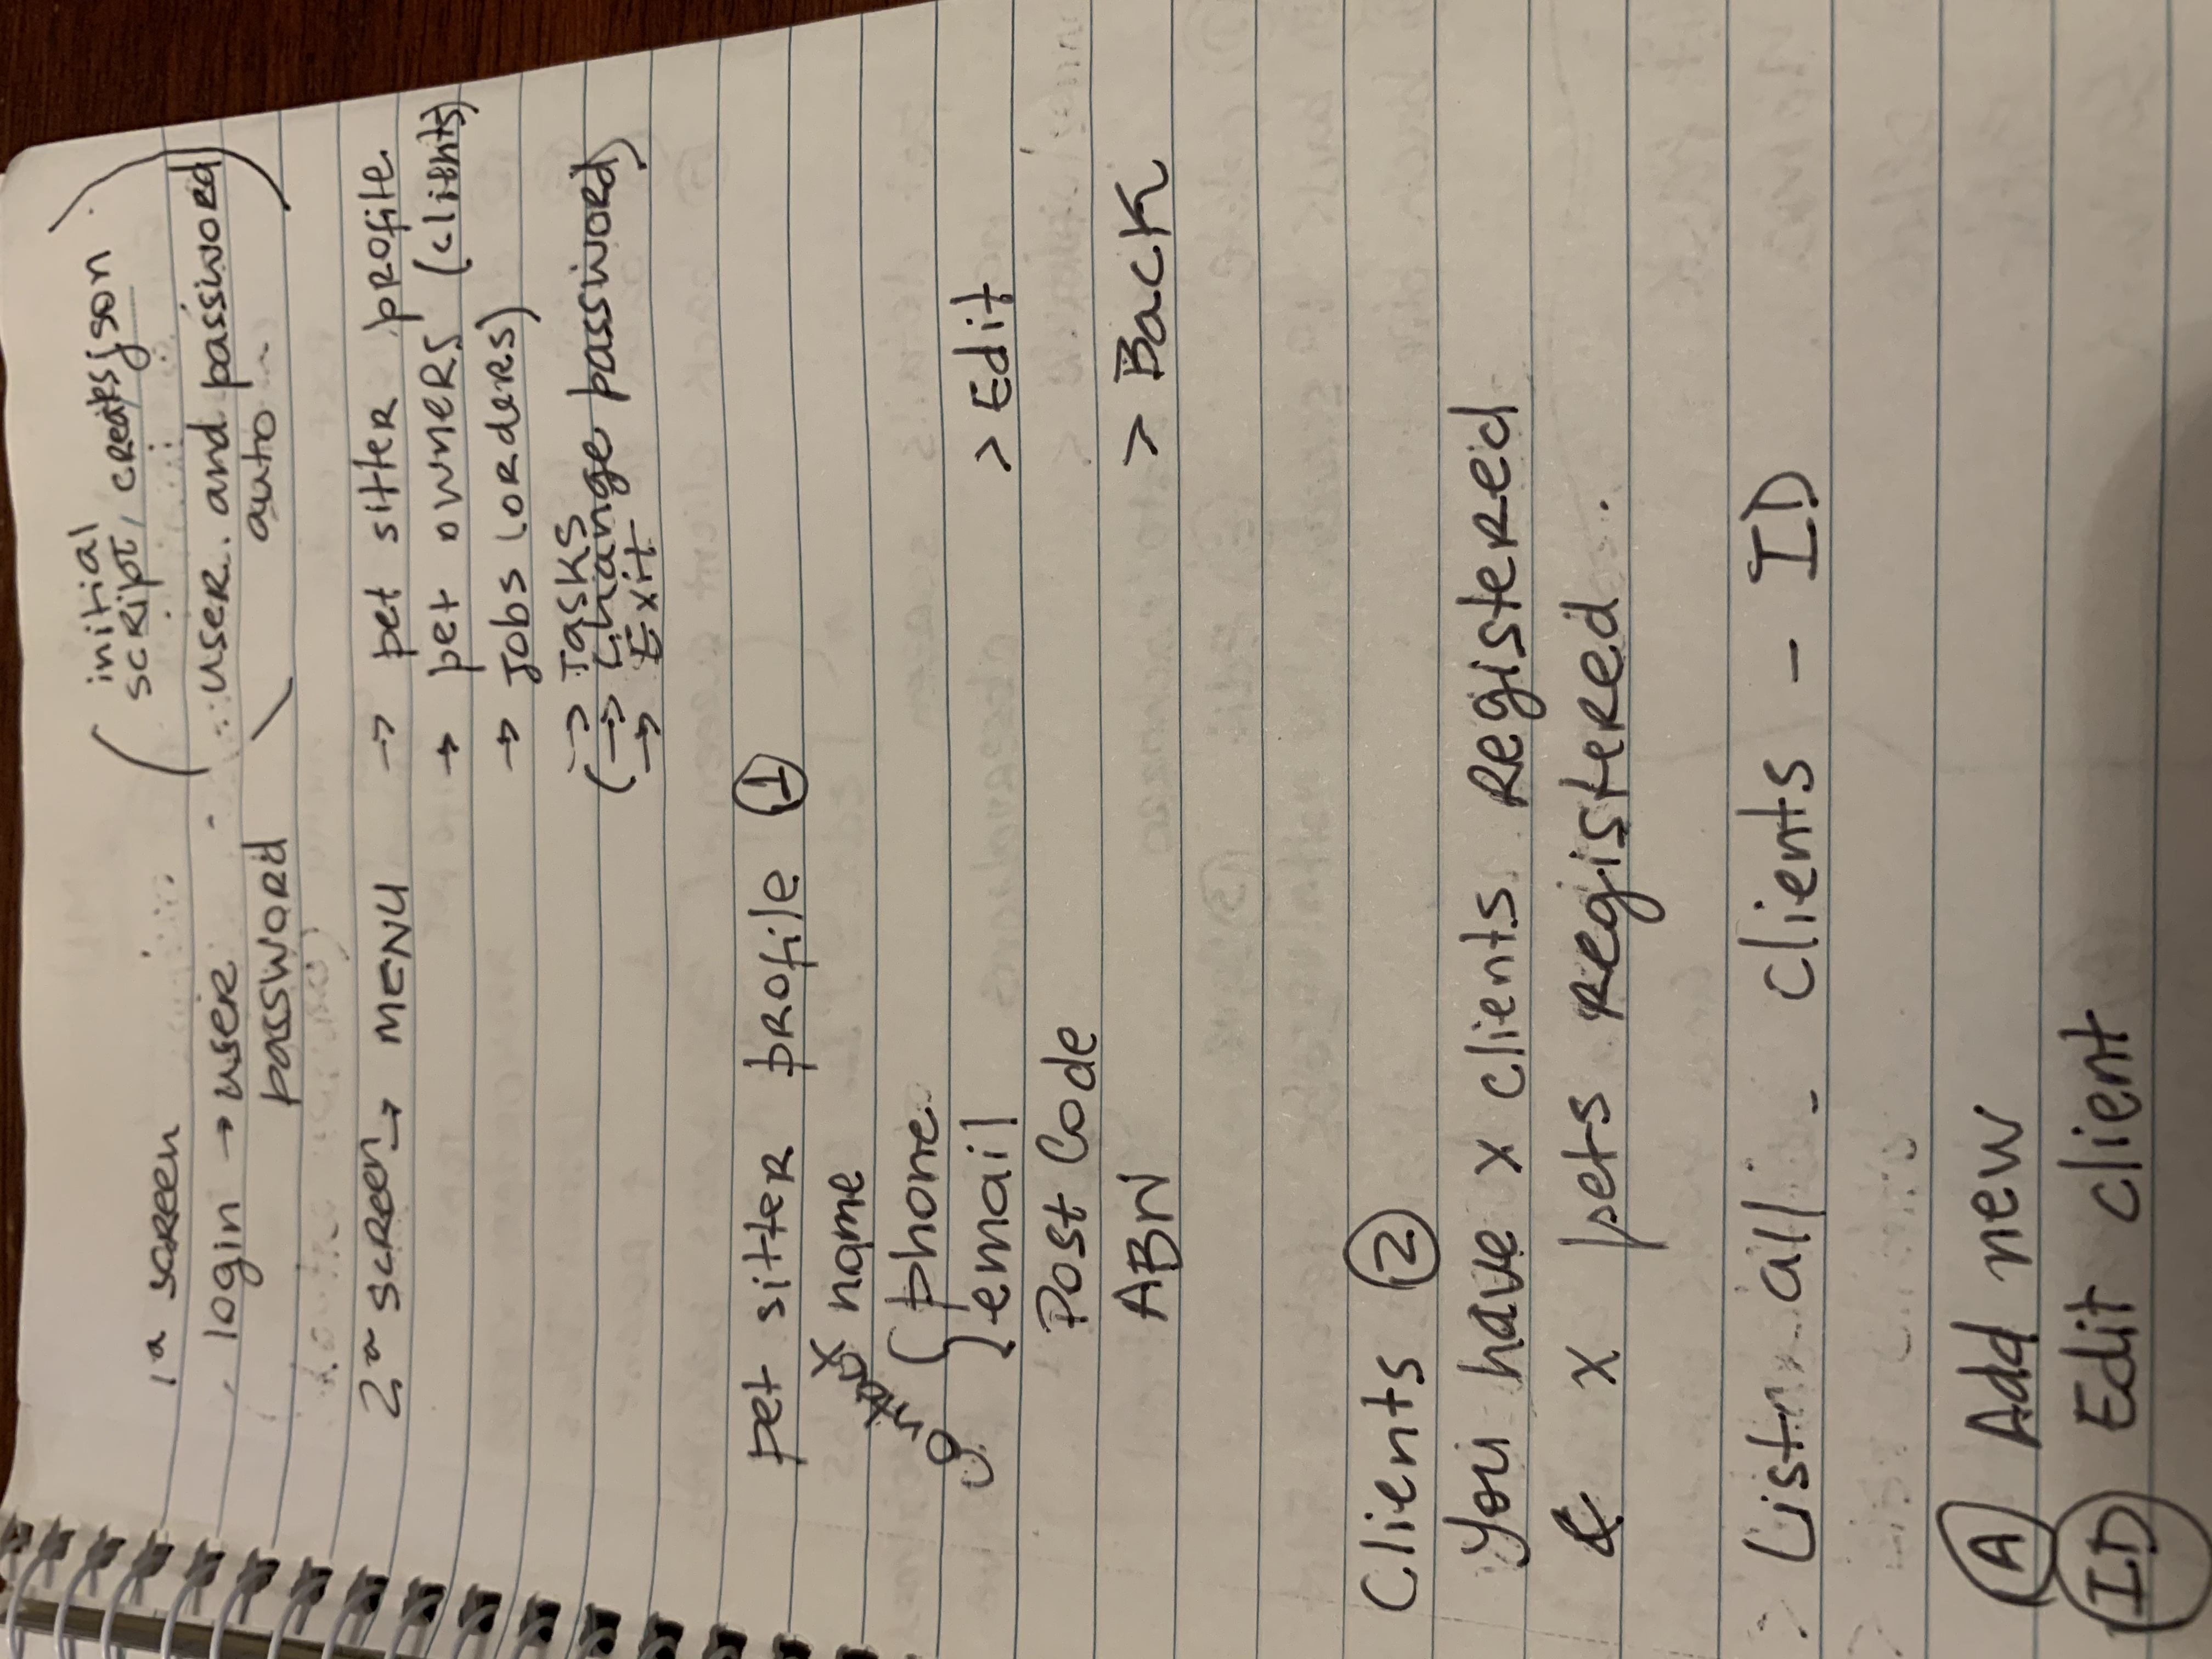 1ª screen
(initial
script, creats json
login → user - user. and password
password auto)
2ª screen → MENU → pet sitter profile
→ pet owners (clients)
→ Jobs (orders)
→ Tasks
(→ Change password)
→ Exit
pet sitter profile ①
name
phone
email > Edit
Post Code
ABN > Back
Clients ②
You have x clients Registered
& x pets Registered.
> List all - clients - ID
Ⓐ Add new
ID Edit client